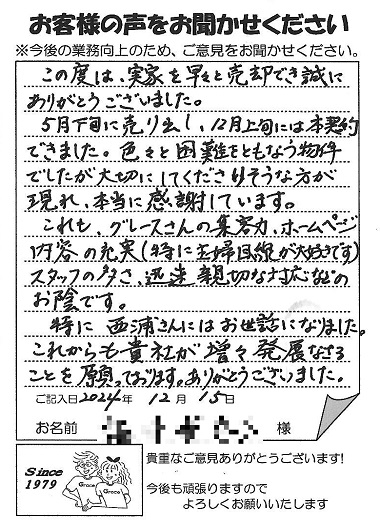 お客様の声をお聞かせください
※今後の業務向上のため、ご意見をお聞かせください。
この度は、実家を早々と売却でき誠に
ありがとうございました。
5月下旬に売り出し、12月上旬には本契約
できました。色々と困難をともなう物件
でしたが大切にしてくださりそうな方が
現れ、本当に感謝しています。
これも、グレースさんの集客力、ホームページ
内容の充実(特に主婦目線が大好きです)
スタッフの多さ、迅速親切な対応などの
お陰です。
特に西浦さんにはお世話になりました。
これからも貴社が増々発展なさる
ことを願っております。ありがとうございました。
ご記入日2024年 12月 15日
お名前 様
Since
1979
Grace
Grace
貴重なご意見ありがとうございます!
今後も頑張りますので
よろしくお願いいたします